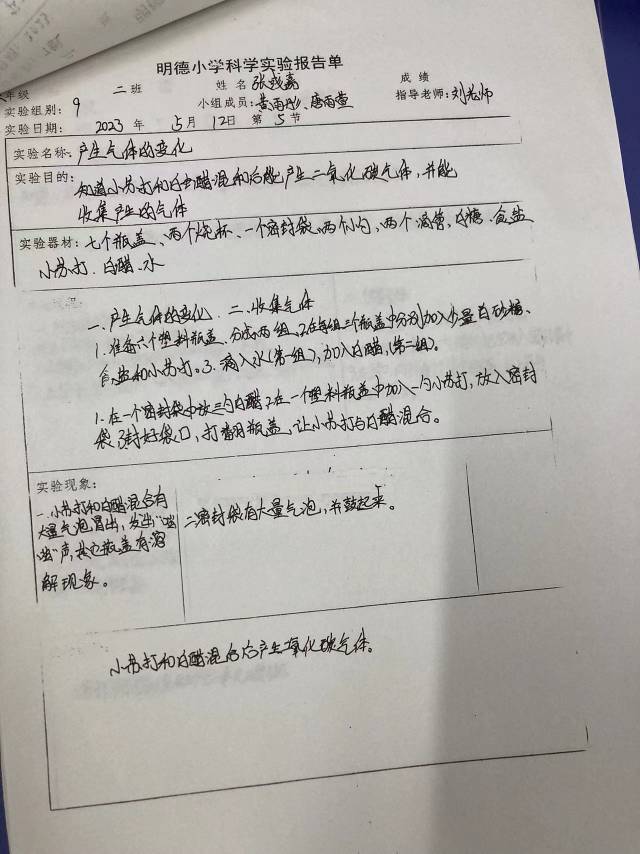 明德小学科学实验报告单
年级 二班 姓名 张 嘉 成绩
实验组别：9 小组成员：黄雨彤、唐雨萱 指导老师：刘老师
实验日期： 2023 年 5月 12日 第 5 节
实验名称：产生气体的变化
实验目的：知道小苏打和白醋混和后能产生二氧化碳气体，并能
收集产生的气体
实验器材：七个瓶盖、两个烧杯、一个密封袋、两个小勺，两个滴管，白糖、食盐
小苏打、白醋、水
一、产生气体的变化 二、收集气体
1.准备六个塑料瓶盖，分成两组，2.在每组三个瓶盖中分别加入少量白砂糖、
食盐和小苏打。3.滴入水(第一组)，加入白醋，(第二组)。
1.在一个密封袋中放三勺白醋，2.在一个塑料瓶盖中加入一勺小苏打，放入密封
袋，3封好袋口，打翻瓶盖，让小苏打与白醋混合。
实验现象：
一、小苏打和白醋混合有
大量气泡冒出，发出“嗞
嗞”声，其它瓶盖有溶
解现象。
二密封袋有大量气泡，并鼓起来。
小苏打和白醋混合后产生二氧化碳气体。